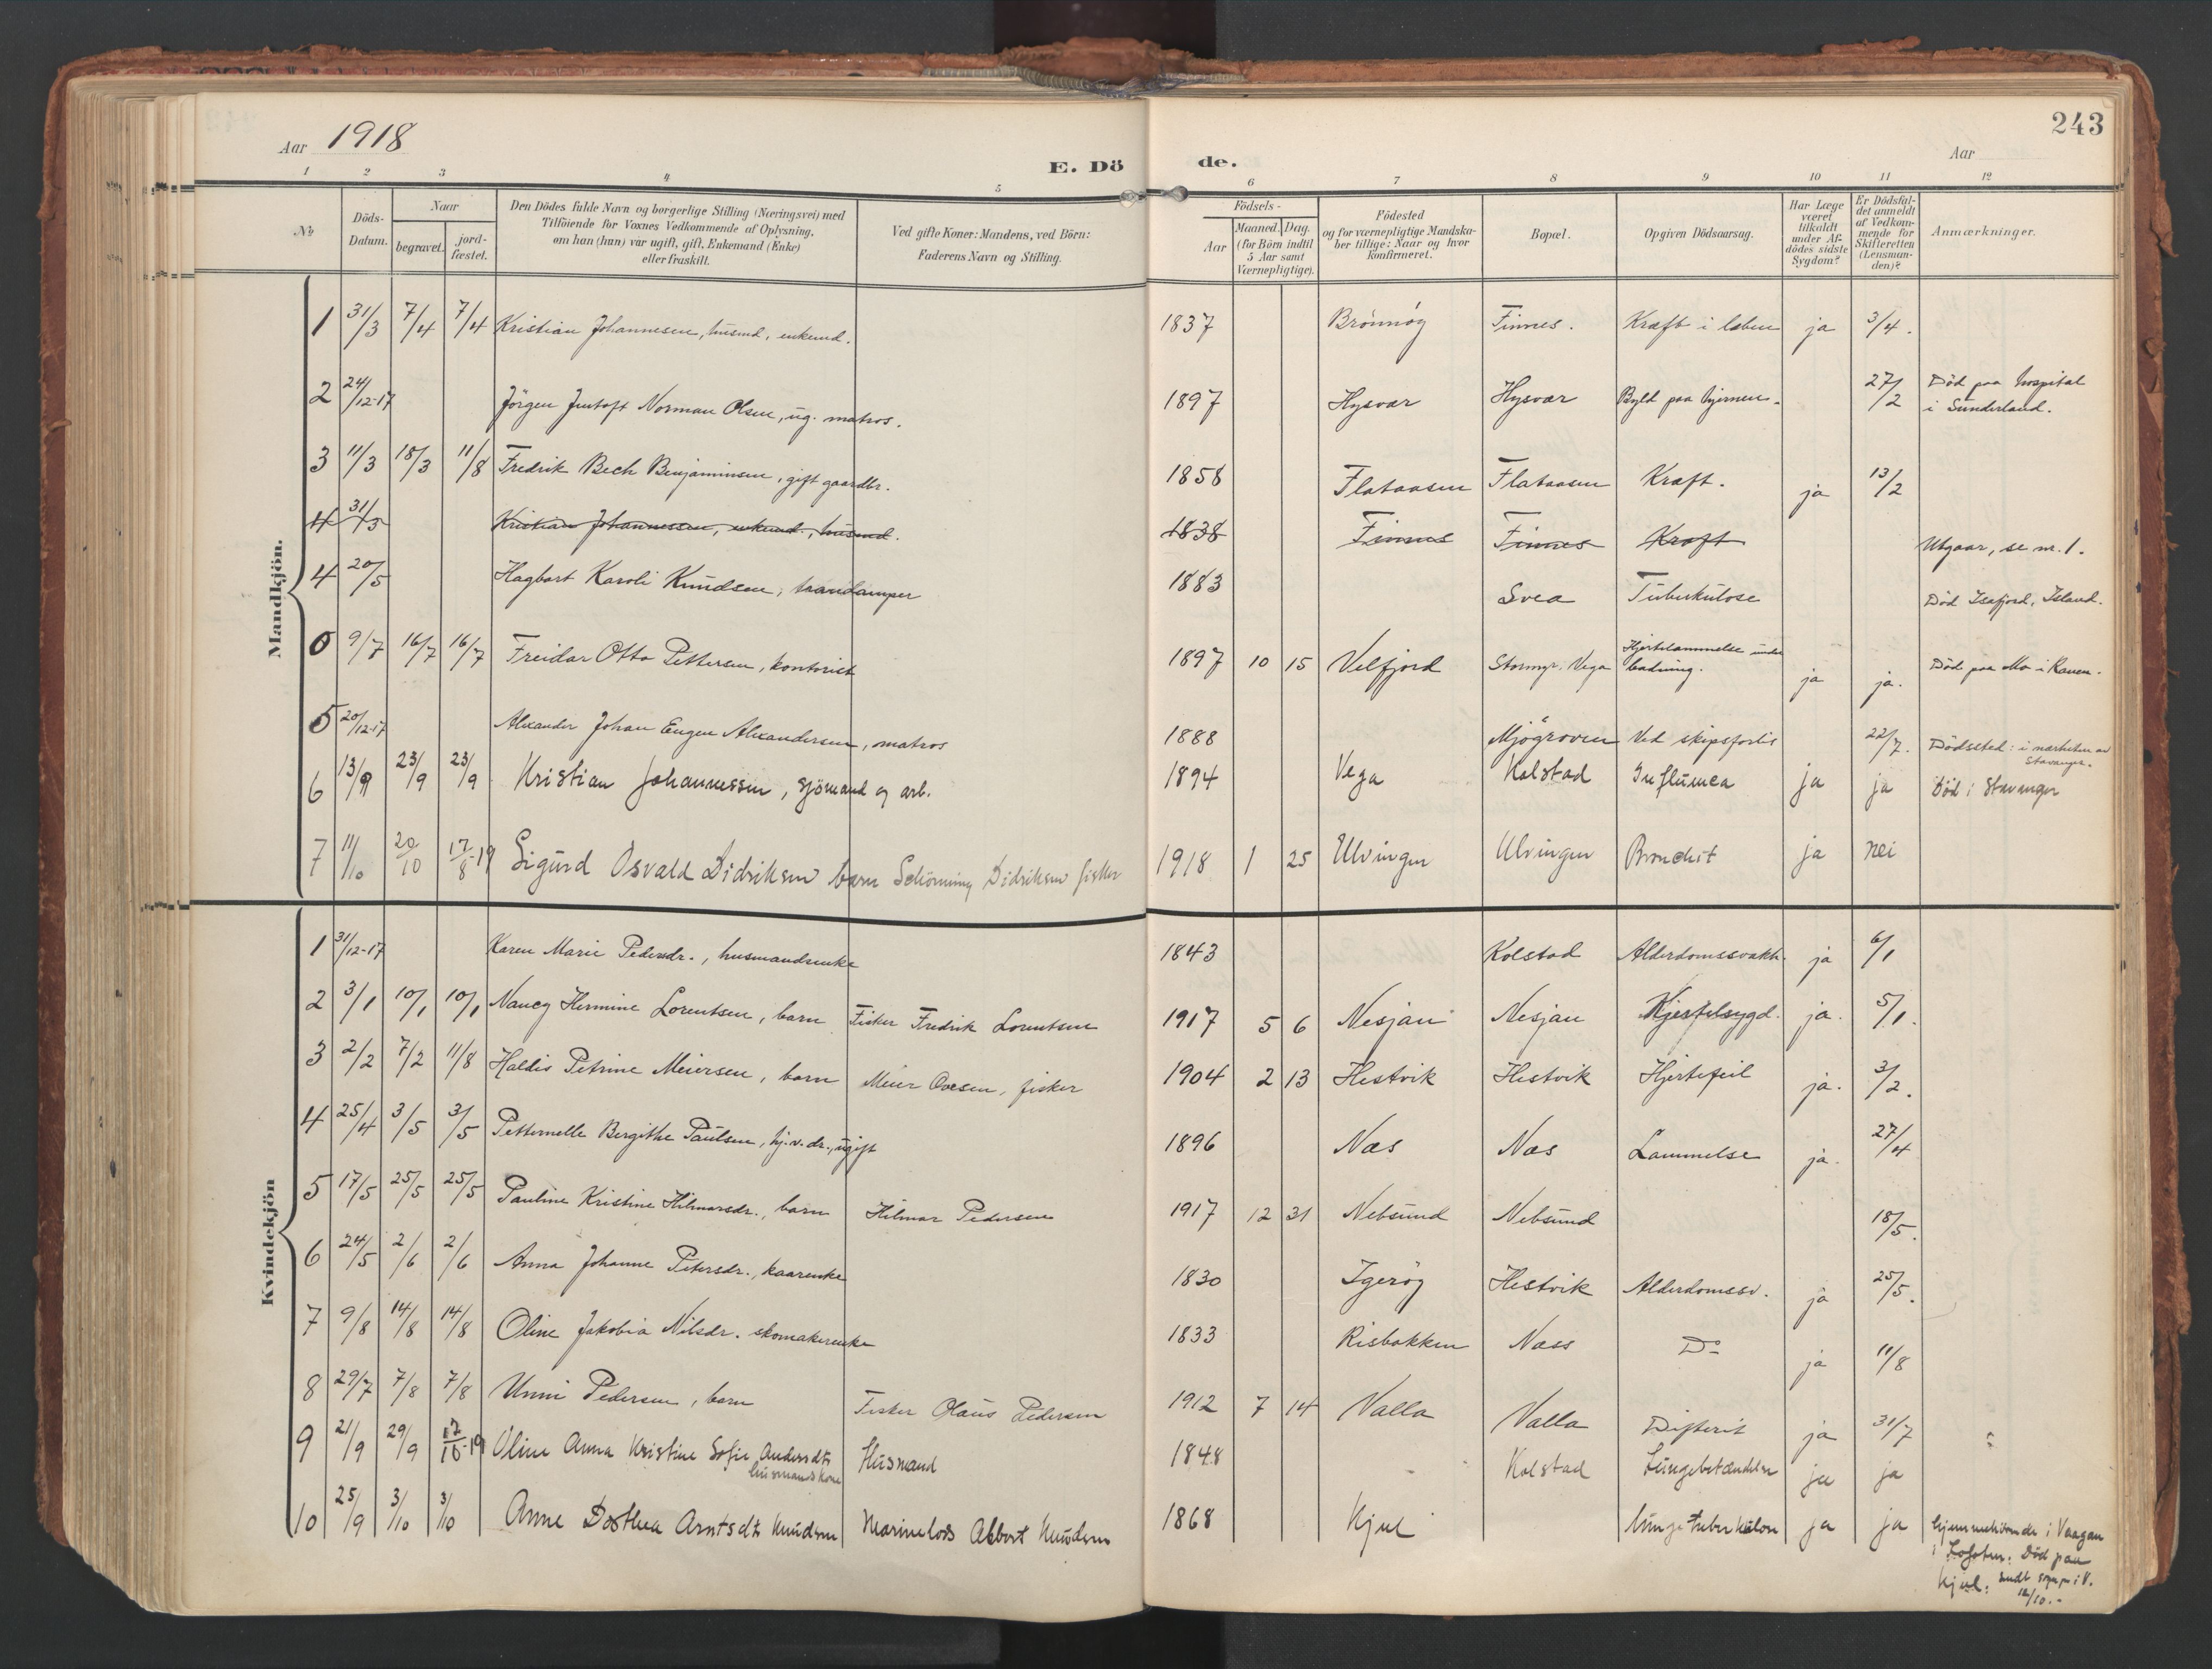 243
Aar 1918
E. Dö de.
Aar
1 2 3 4 5 6 7 8 9 10 11 12
No
Döds-Datum.
Naar
begravet.
jord-fæstet.
Den Dödes fulde Navn og borgerlige Stilling (Næringsvei) med
Tilföiende for Voxnes Vedkommende af Oplysning,
om han (hun) var ugift, gift, Enkemand (Enke)
eller fraskilt.
Ved gifte Koner: Mandens, ved Börn:
Faderens Navn og Stilling.
Födsels-
Aar
Maaned. Dag.
(for Börn indtil
5 Aar samt
Værnepligtige).
Födested
og for værnepligtige Mandska-
ber tillige: Naar og hvor
konfirmeret.
Bopæl.
Opgiven Dödsaarsag.
Har Læge
været
tilkaldt
under Af-
dödes sidste
Sygdom?
Er Dödsfal-
det anmeldt
af Vedkom-
mende for
Skifteretten
(Lensman-
den)?
Anmærkninger.
Mandkjön.
1 31/3 7/4 7/4 Kristian Johannesen, husmd, enkemd. 1837 Brönnöy Finnes. Kræft i læben ja 3/4.
2 24/12-17 Jörgen Norman Olsen, ug. matros. 1897 Hysvær Hysvær Byld paa hjernen. 27/2 Död paa hospital
i Sunderland.
3 11/3 18/3 11/8 Fredrik Bech Benjaminsen, gift gaardbr. 1858 Flataasen Flataasen Kræft. ja 13/2
4 31/3 Kristian Johannessen, enkemd., husmd. 1838 Finnes Finnes Kræft Utgaar, se nr. 1.
4 20/5 Hagbart Karoli Knudsen, trandamper 1883 Svea Tuberkulose Död Isafjord, Island.
6 9/7 16/7 16/7 Freidar Otto Pettersen, kontorist 1897 10 15 Velfjord Stormyr. Vega Hjertelammelse under
badning. ja ja. Död paa Mo i Ranen.
5 20/12-17 Alexander Johan Eugen Alexandersen, matros 1888 Mjögroven Ved skipsforlis 22/7. Dödssted: i nærheten av
Stavanger.
6 13/9 23/9 23/9 Kristian Johannessen, sjömand og arb. 1894 Vega Kolstad Influensa ja ja Död i Stavanger
7 11/10 20/10 17/8-19 Sigurd Osvald Didriksen barn Schönning Didriksen fisker 1918 1 25 Ulvingen Ulvingen Bronchit ja nei
Kvindekjön
1 31/12-17 Karen Marie Pedersdr., husmandsenke 1843 Kolstad Alderdomssvakh. ja 6/1
2 3/1 10/1 10/1 Nancy Hermine Lorentsen, barn Fisker Fredrik Lorentsen 1917 5 6 Nesjan Nesjan Kjertelsygd. ja. 5/1.
3 2/2 7/2 11/8 Haldis Petrine Meiersen, barn Meier Ovesen, fisker 1904 2 13 Hestvik Hestvik Hjertefeil ja. 3/2.
4 25/4 3/5 3/5 Petternelle Bergithe Paulsen, hj.v. dr., ugift 1896 Næs Næs Lammelse ja. 27/4
5 17/5 25/5 25/5 Pauline Kristine Hilmarsdr., barn Hilmar Pedersen 1917 12 31 Nebsund Nebsund 18/5.
6 24/5 2/6 2/6 Anna Johanne Petersdr., kaarenke 1830 Igeröy Hestvik Alderdomssv. ja 25/5.
7 9/8 14/8 14/8 Oline Jakobia Nilsdr. skomakerenke 1833 Risbakken Næss Do ja 11/8
8 29/7 7/8 7/8 Unni Pedersen, barn Fisker Olaus Pedersen 1912 7 14 Valla Valla Difterit ja 31/7
9 21/9 29/9 17/10-19 Oline Anna Kristine Sofie Andersdtr
husmandskone Husmand 1848 Kolstad Lungebetændelse ja ja
10 25/9 3/10 3/10 Anne Dorthea Arntsdtr Knudsen Marinelods Albert Knudsen 1868 Kjul lungetuberkulose ja ja hjemmehörende i Vaagan
i Lofoten. Död paa
Kjul. sendt sogn.pr. i V.
12/10.-